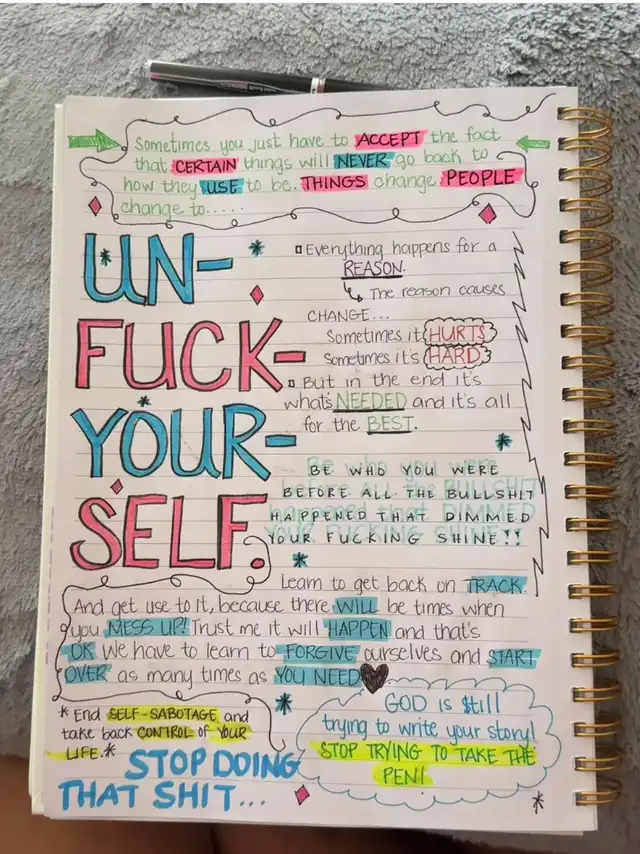 Sometimes you just have to ACCEPT the fact
that CERTAIN things will NEVER go back to
how they USE to be. THINGS change. PEOPLE
change to.....
UN-
FUCK-
YOUR-
SELF.
Everything happens for a
REASON.
The reason causes
CHANGE...
Sometimes it HURTS
Sometimes it's HARD
But in the end it's
what's NEEDED and it's all
for the BEST.
BE WHO YOU WERE
BEFORE ALL THE BULLSHIT
HAPPENED THAT DIMMED
YOUR FUCKING SHINE!!
Learn to get back on TRACK.
And get use to it, because there WILL be times when
you MESS UP! Trust me it will HAPPEN and that's
OK. We have to learn to FORGIVE ourselves and START
OVER as many times as YOU NEED
*End SELF-SABOTAGE and
take back CONTROL of YOUR
LIFE.*
STOP DOING
THAT SHIT...
GOD is $till
trying to write your story!
STOP TRYING TO TAKE THE
PEN!